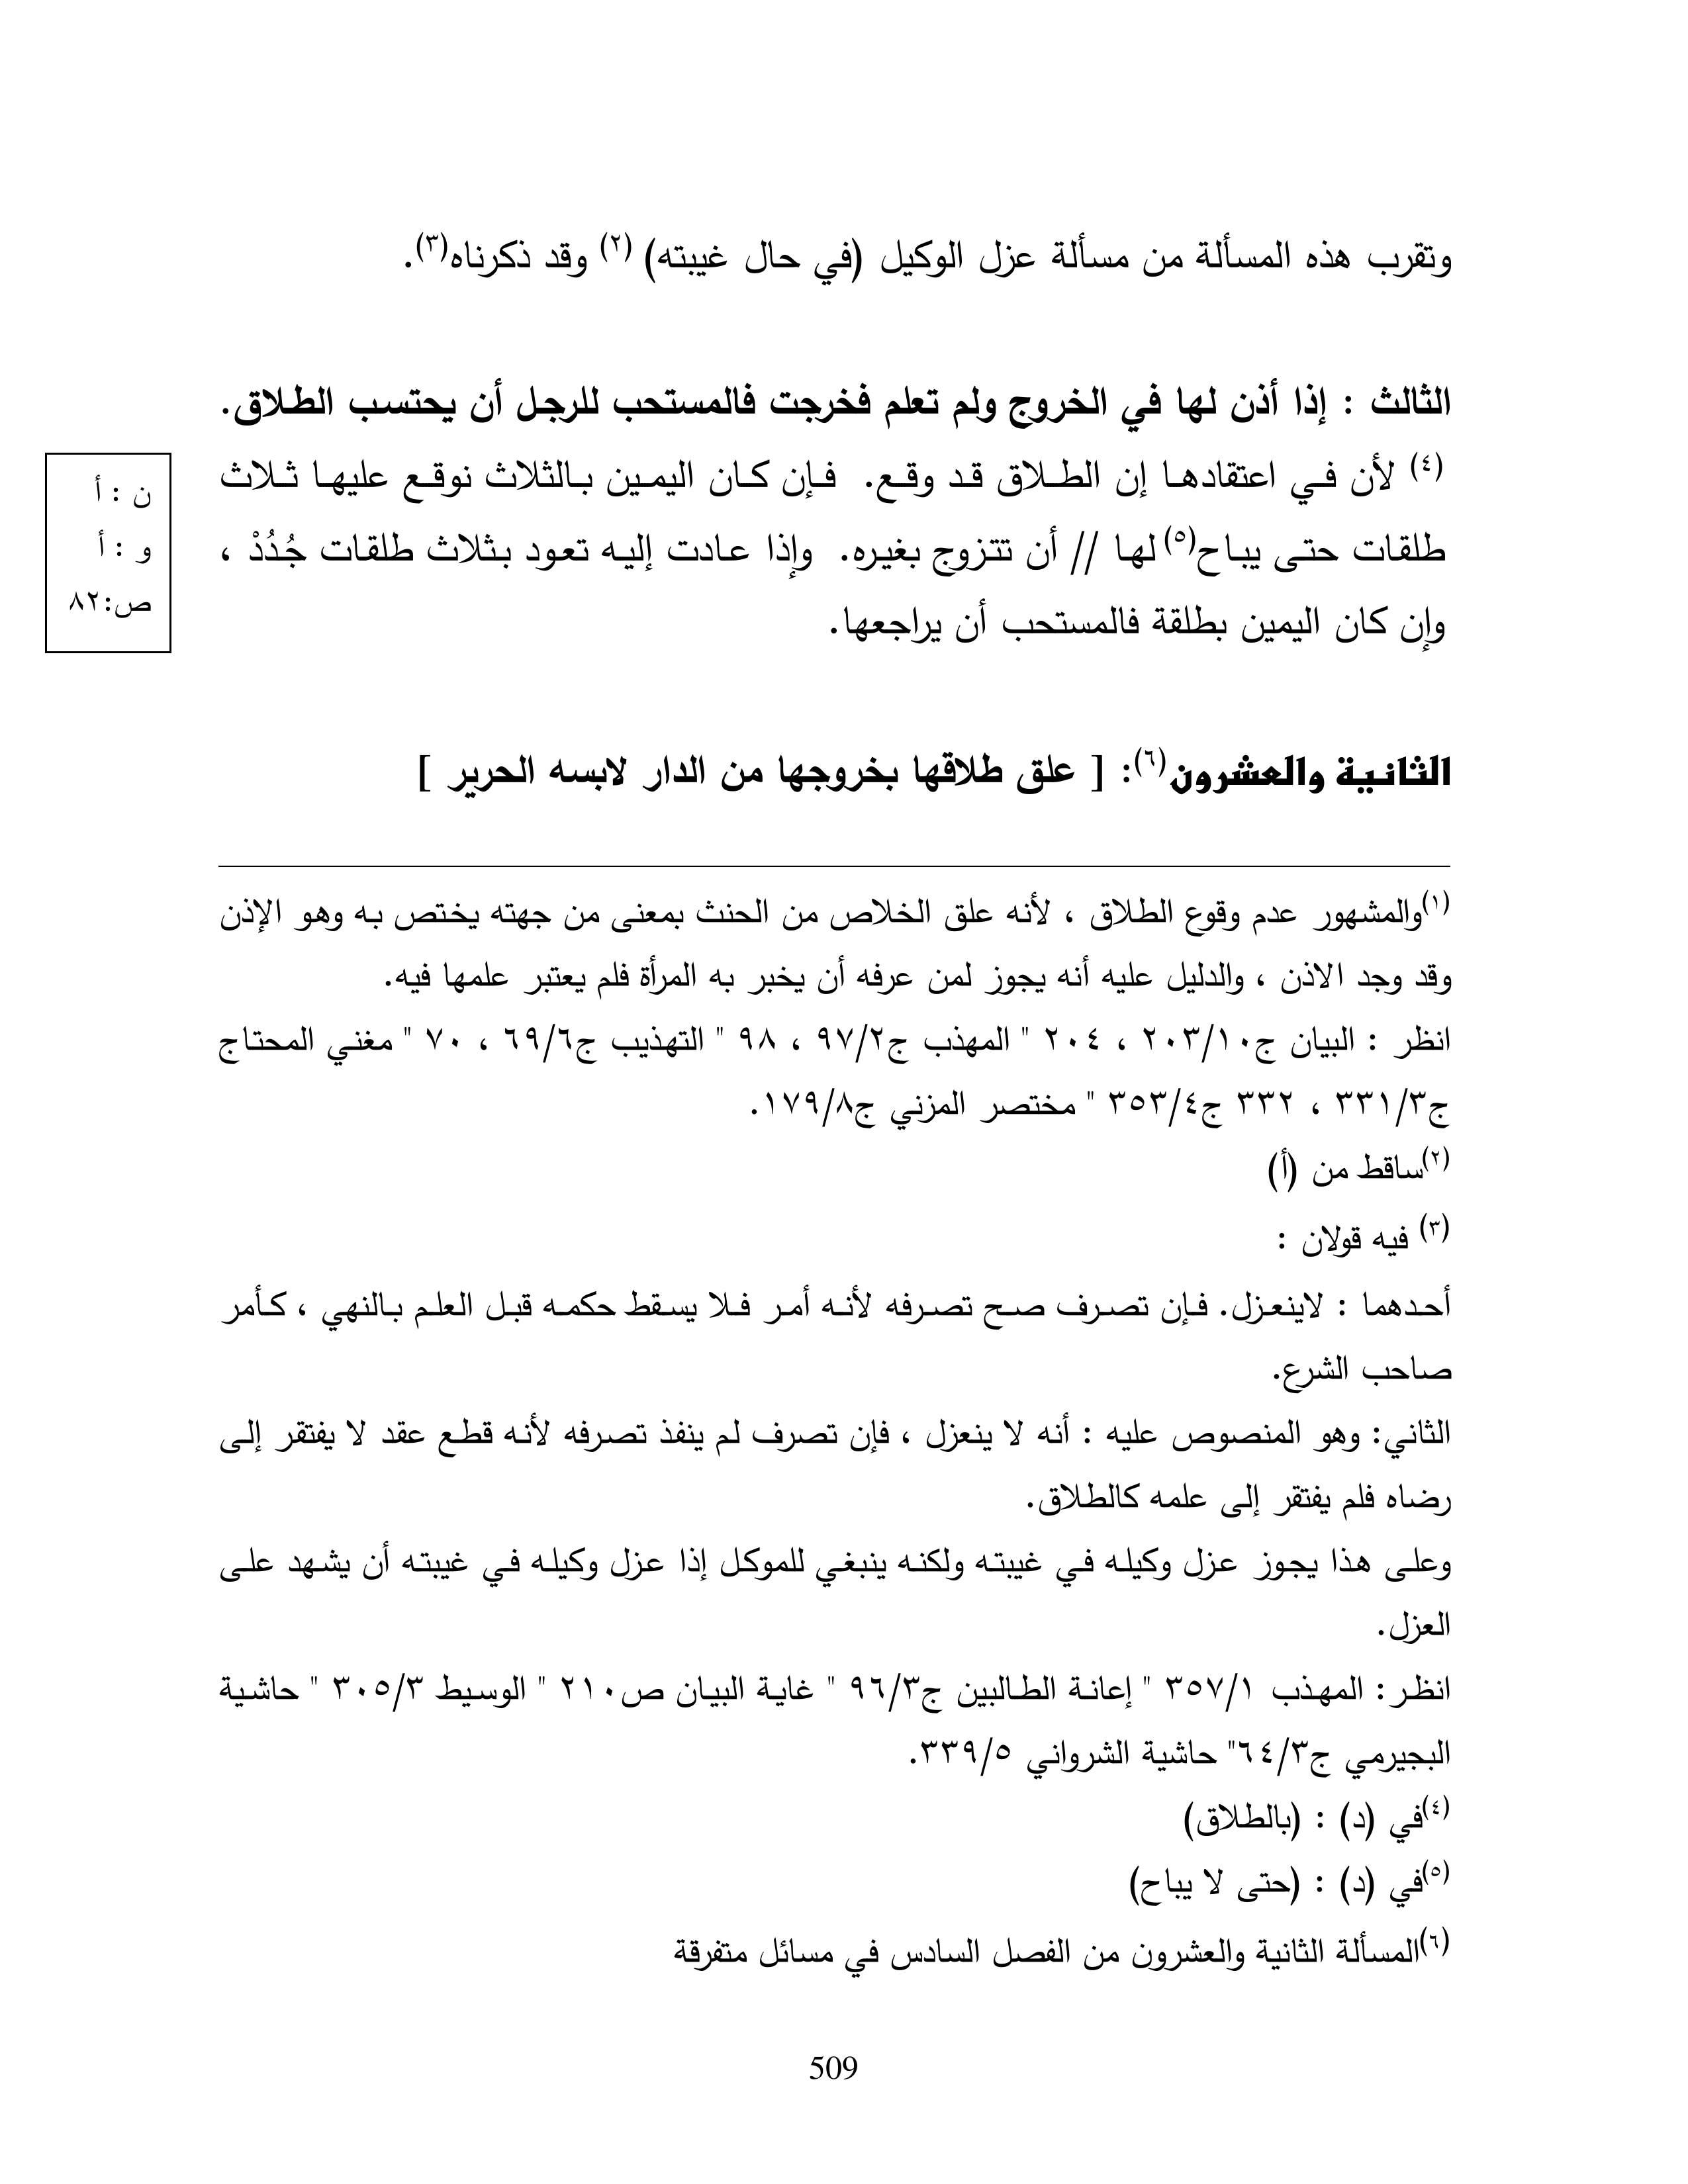 وتقرب هذه المسألة من مسألة عزل الوكيل (في حال غيبته) (٢) وقد ذكرناه(٣).
الثالث : إذا أذن لها في الخروج ولم تعلم فخرجت فالمستحب للرجل أن يحتسب الطلاق.
(٤) لأن في اعتقادها إن الطلاق قد وقع. فإن كان اليمين بالثلاث نوقع عليها ثلاث
طلقات حتى يباح(٥) لها // أن تتزوج بغيره. وإذا عادت إليه تعود بثلاث طلقات جُدُدْ ،
وإن كان اليمين بطلقة فالمستحب أن يراجعها.
ن : أ
و : أ
ص:٨٢
الثانية والعشرون(٦): [ علق طلاقها بخروجها من الدار لابسه الحرير ]
(١)والمشهور عدم وقوع الطلاق ، لأنه علق الخلاص من الحنث بمعنى من جهته يختص به وهو الإذن
وقد وجد الاذن ، والدليل عليه أنه يجوز لمن عرفه أن يخبر به المرأة فلم يعتبر علمها فيه.
انظر : البيان ج٢٠٣/١٠ ، ٢٠٤ " المهذب ج٩٧/٢ ، ٩٨ " التهذيب ج٦٩/٦ ، ٧٠ " مغني المحتاج
ج٣٣١/٣ ، ٣٣٢ ج٣٥٣/٤ " مختصر المزني ج١٧٩/٨.
(٢)ساقط من (أ)
(٣) فيه قولان :
أحدهما : لاينعزل. فإن تصرف صح تصرفه لأنه أمر فلا يسقط حكمه قبل العلم بالنهي ، كأمر
صاحب الشرع.
الثاني: وهو المنصوص عليه : أنه لا ينعزل ، فإن تصرف لم ينفذ تصرفه لأنه قطع عقد لا يفتقر إلى
رضاه فلم يفتقر إلى علمه كالطلاق.
وعلى هذا يجوز عزل وكيله في غيبته ولكنه ينبغي للموكل إذا عزل وكيله في غيبته أن يشهد على
العزل.
انظر: المهذب ٣٥٧/١ " إعانة الطالبين ج٩٦/٣ " غاية البيان ص٢١٠ " الوسيط ٣٠٥/٣ " حاشية
البجيرمي ج٦٤/٣" حاشية الشرواني ٣٣٩/٥.
(٤)في (د) : (بالطلاق)
(٥)في (د) : (حتى لا يباح)
(٦)المسألة الثانية والعشرون من الفصل السادس في مسائل متفرقة
509